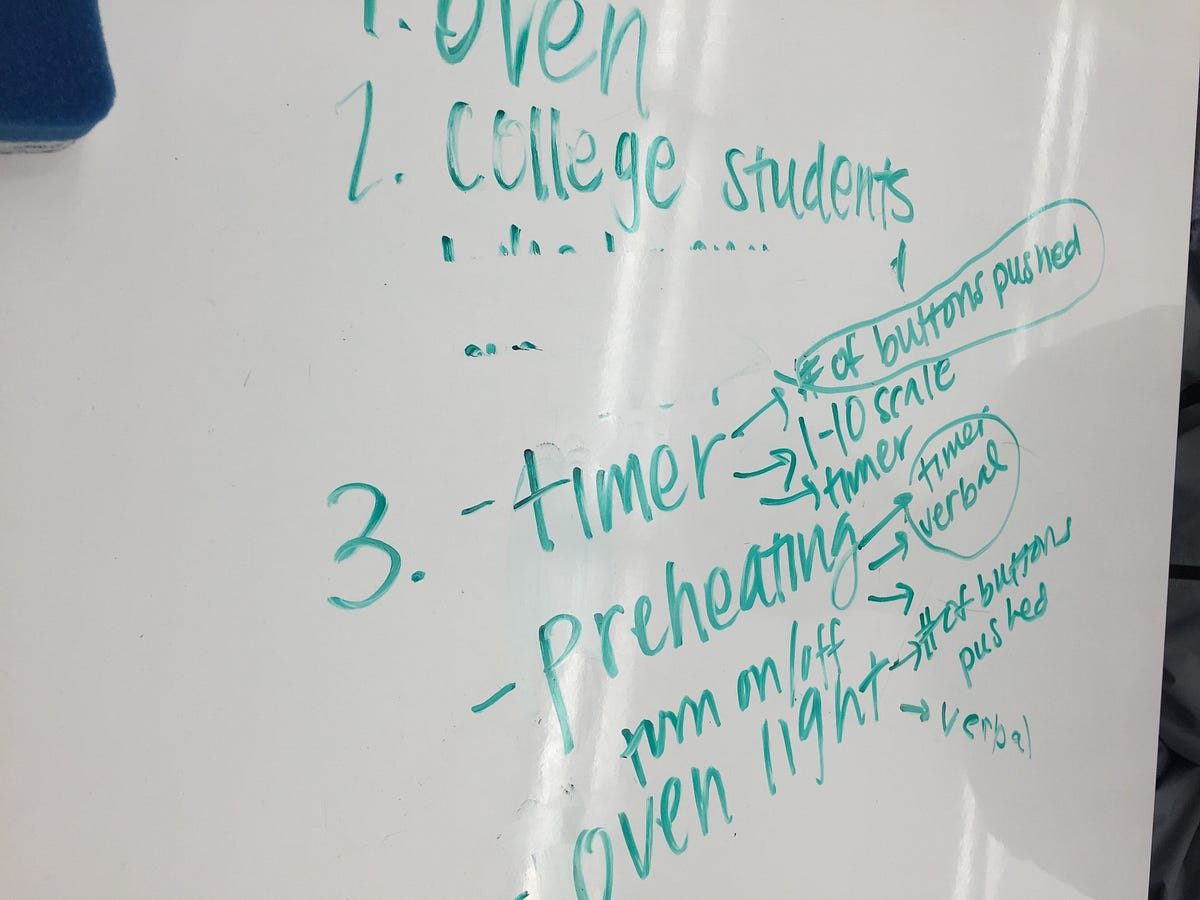 1. Oven
2. College students
# of buttons pushed
3. - timer → 1-10 scale
→ timer
timer
- preheating → verbal
→ # of buttons
pushed
turn on/off
- oven light → verbal